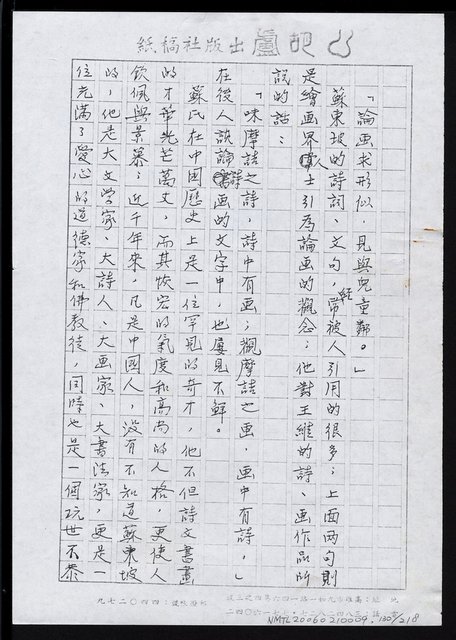 紙稿社版出蘆葫
「論画求形似，見與兒童鄰。」
蘇東坡的詩詞、文句，經常被人引用的很多；上面兩句則
是繪画界人士引為論画的觀念；他對王維的詩、画作品所
說的話：
「味摩詰之詩，詩中有画；觀摩詰之画，画中有詩，」
在後人談論詩画的文字中，也屢見不鮮。
蘇氏在中國歷史上是一位罕見的奇才，他不但詩文書畫
的才華光芒萬丈，而其恢宏的氣度和高尚的人格，更使人
欽佩與景慕；近千年來，凡是中國人，沒有不知道蘇東坡
的，他是大文學家、大詩人、大画家、大書法家，更是一
位充滿了愛心的道德家和佛教徒，同時也是一個玩世不恭
NMTL20060210009, 130/218